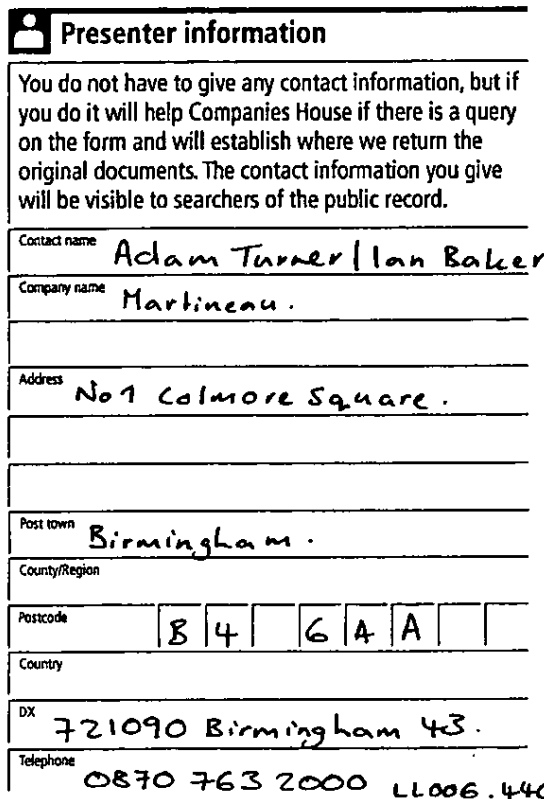 Presenter information
You do not have to give any contact information, but if
you do it will help Companies House if there is a query
on the form and will establish where we return the
original documents. The contact information you give
will be visible to searchers of the public record.
Contact name Adam Turner / Ian Baker
Company name Martineau.
Address No 1 Colmore Square.
Post town Birmingham.
County/Region
Postcode B4 6AA
Country
DX 721090 Birmingham 43.
Telephone 0870 763 2000 LL006.440